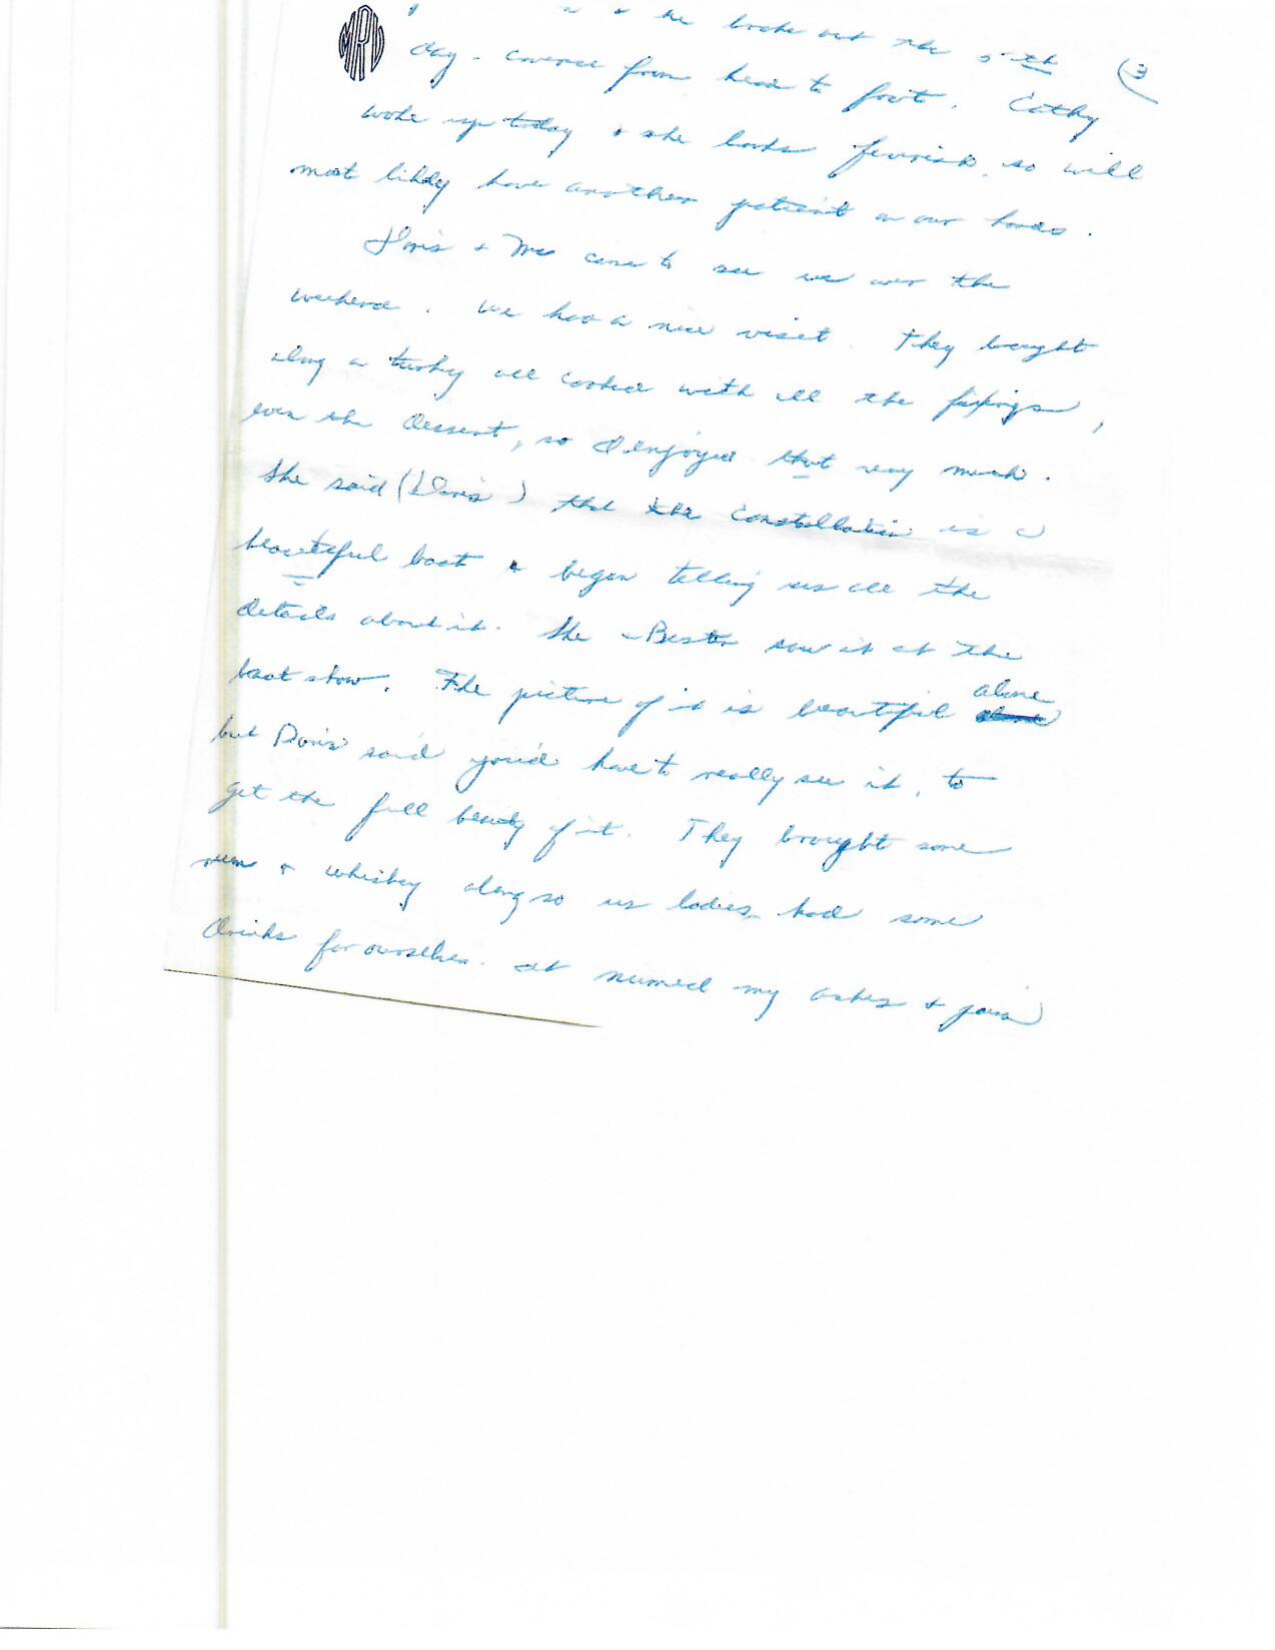 & he broke out the 5th (3
MRW
day - covered from head to foot. Cathy
woke up today & she looks feverish, so will
most likly have another patient on our hands.
Doris & Mac came to see us over the
weekend. We had a nice visit. They brought
along a turkey all cooked with all the fixings,
even the dessert, so I enjoyed that very much.
She said (Doris) that the Constellation is a
beautiful boat & began telling us all the
details about it. She & Best saw it at the
boat show. The picture of it is beautiful alone
but Doris said you'd have to really see it, to
get the full beauty of it. They brought some
rum & whiskey along so us ladies had some
drinks for ourselves. It numed my aches & pain